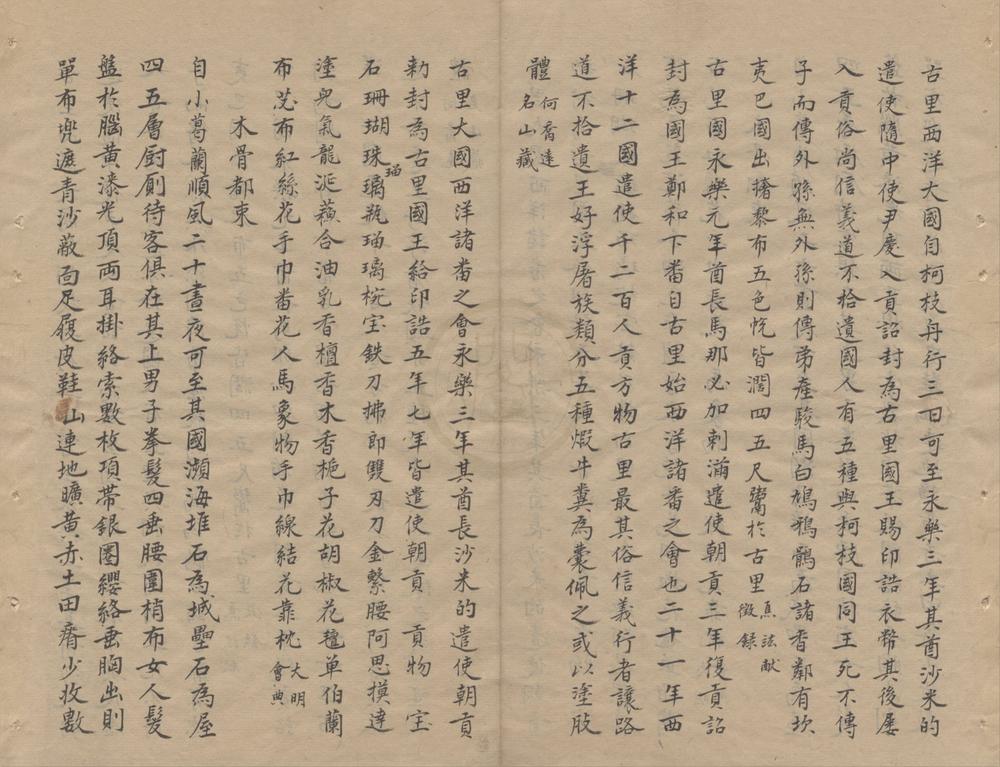 古里西洋大國自柯枝舟行三日可至永樂三年其酋沙米的
遣使隨中使尹慶入貢詔封為古里國王賜印誥衣幣其後屢
入貢俗尚信義道不拾遺國人有五種與柯枝國同王死不傳
子而傳外孫無外孫則傳弟產駿馬白鳩鴉鶻石諸香鄰有坎
夷巴國出撦黎布五色帨皆濶四五尺鬻於古里焦竑献徵録
古里國永樂元年酋長馬那必加剌滿遣使朝貢三年復貢詔
封為國王鄭和下番自古里始西洋諸番之會也二十一年西
洋十二國遣使千二百人貢方物古里最其俗信義行者讓路
道不拾遺王好浮屠族類分五種煅牛糞為囊佩之或以塗肢
體何喬遠名山藏
古里大國西洋諸番之會永樂三年其酋長沙米的遣使朝貢
勑封為古里國王給印誥五年七年皆遣使朝貢　貢物　宝
石珊瑚珠瑠璃瓶瑠璃椀宝鉄刀拂郎雙刃刀金繫腰阿思摸達
塗児氣龍涎蘓合油乳香檀香木香梔子花胡椒花氊单伯蘭
布苾布紅絲花手巾番花人馬象物手巾線結花靠枕大明會典
木骨都東
自小葛蘭順風二十晝夜可至其國瀕海堆石為城壘石為屋
四五層厨厠待客俱在其上男子拳髮四垂腰圍梢布女人髮
盤於腦黄漆光頂両耳掛絡索數枚項帶銀圏纓絡垂胸出則
單布兜遮青沙蔽面足履皮鞋山連地曠黄赤土田瘠少收數